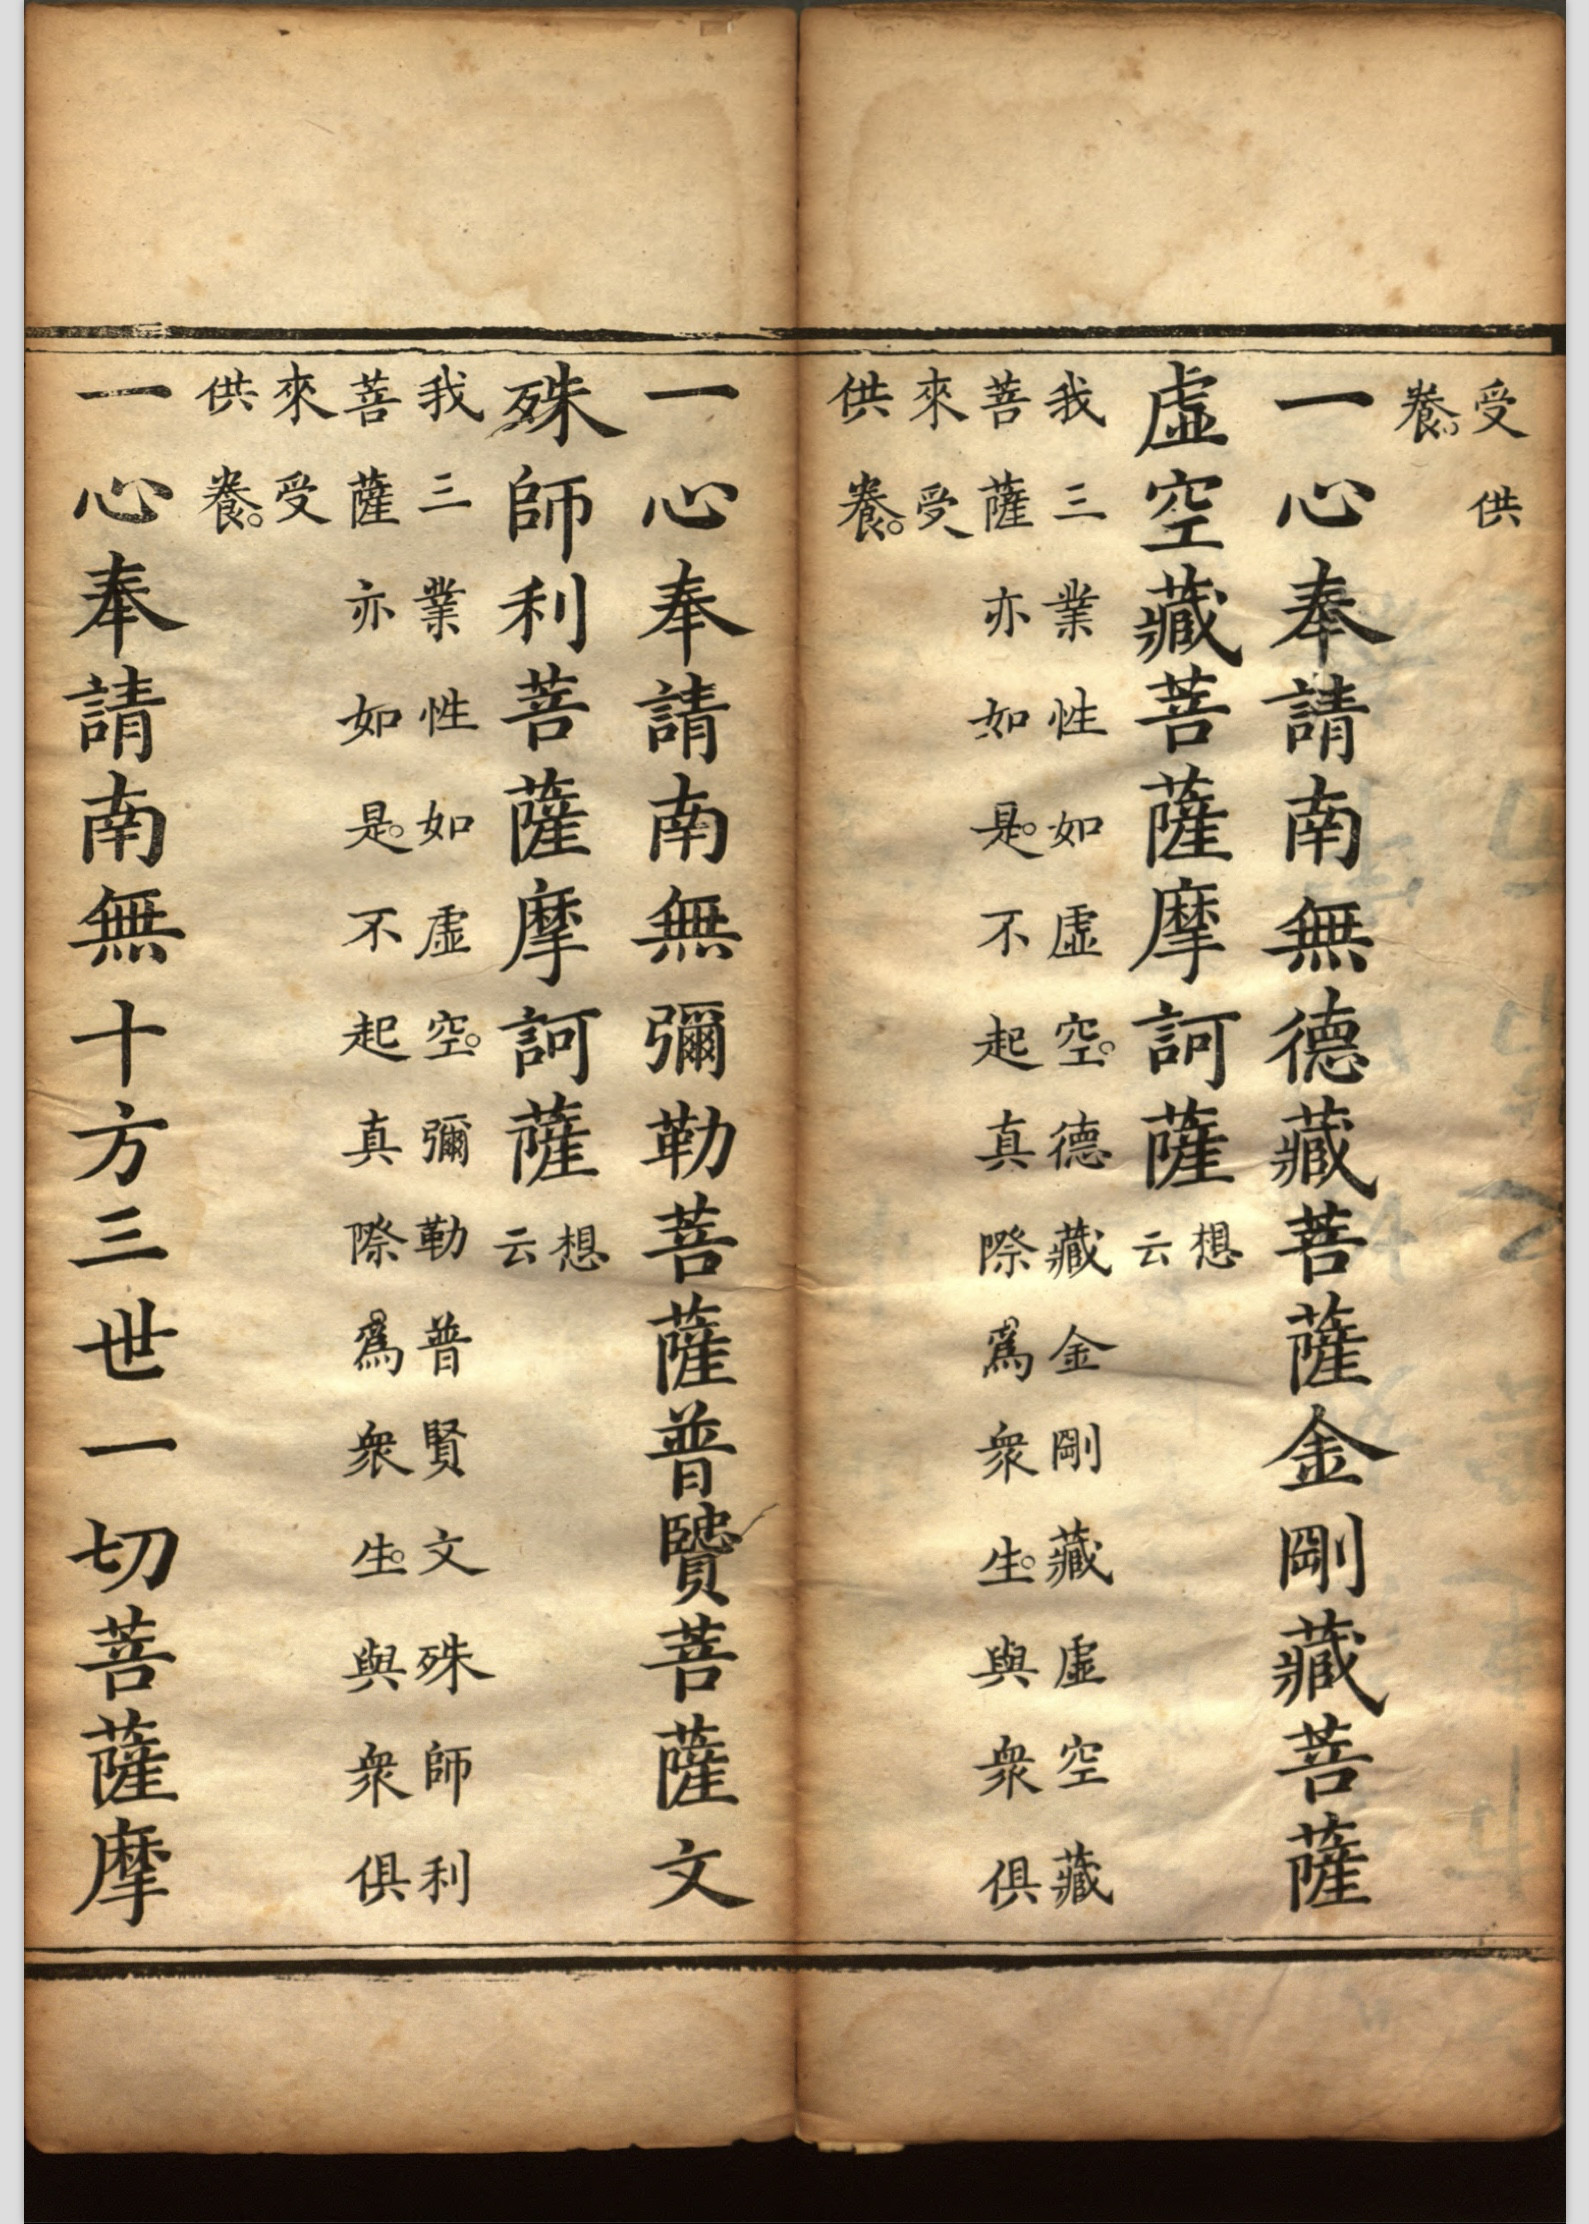 受供
養。
一心奉請南無德藏菩薩金剛藏菩薩
虛空藏菩薩摩訶薩想云
我三業性如虛空。德藏金剛藏虛空藏
菩薩亦如是。不起真際爲衆生。與衆俱
來受
供養。
一心奉請南無彌勒菩薩普賢菩薩文
殊師利菩薩摩訶薩想云
我三業性如虛空。彌勒普賢文殊師利
菩薩亦如是。不起真際爲衆生。與衆俱
來受
供養。
一心奉請南無十方三世一切菩薩摩